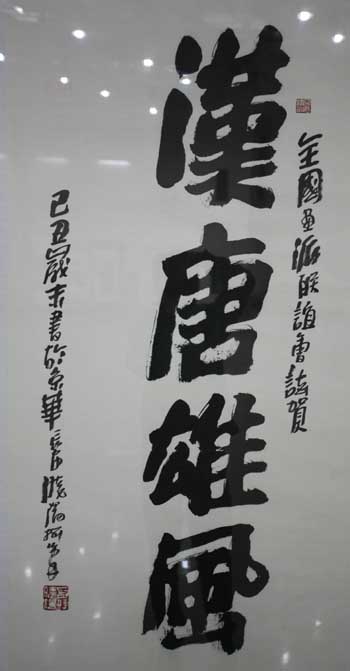 全國画派联誼會誌賀
漢唐雄風
己丑歲末書於京華